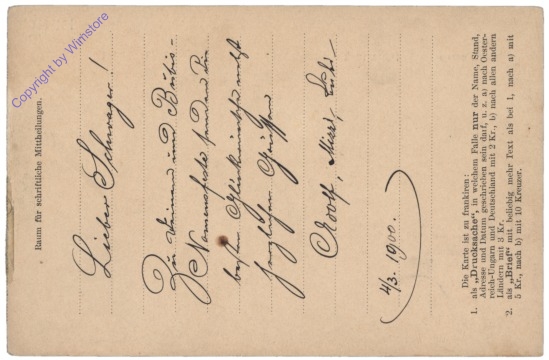 Copyright by Wimstore
Raum für schriftliche Mittheilungen.
Lieber Schwager!
Zu Deinem und Bubis-
Namensfeste senden Dir
besten Glückwünsche nebst
herzlichen Grüßen
Adolf, Mizzl,
4/3. 1900.
Die Karte ist zu frankiren:
1. als „Drucksache“, in welchem Falle nur der Name, Stand,
Adresse und Datum geschrieben sein darf, u. z. a) nach Oester-
reich-Ungarn und Deutschland mit 2 Kr., b) nach allen andern
Ländern mit 3 Kr.
2. als „Brief“ mit beliebig mehr Text als bei 1, nach a) mit
5 Kr., nach b) mit 10 Kreuzer.